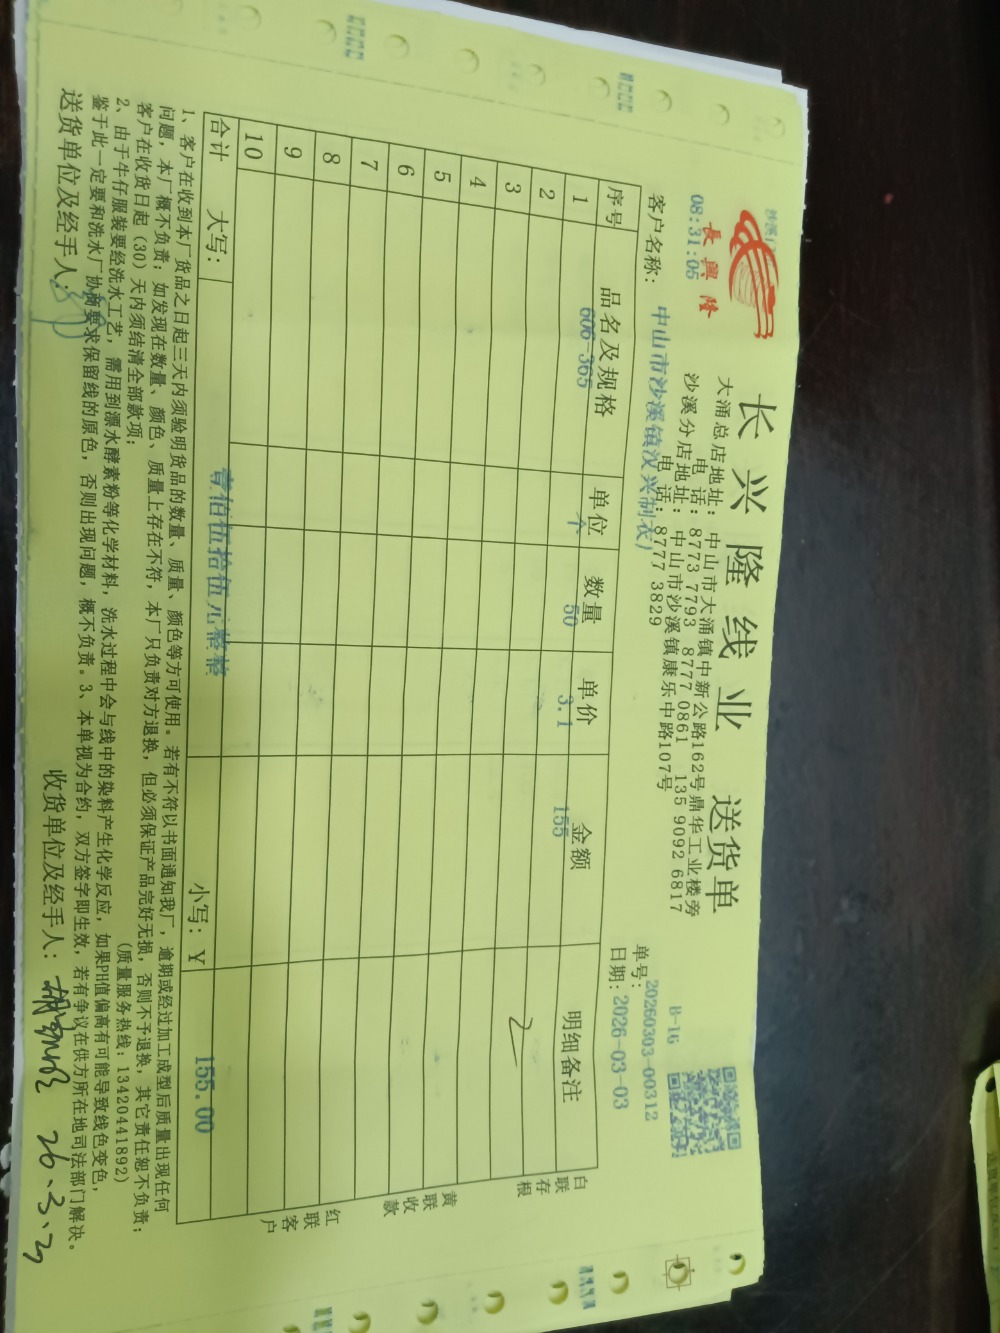 沙溪
长兴隆线业 送货单
長興隆
08:31:05
大涌总店地址:中山市大涌镇中新公路162号鼎华工业楼旁
电话:8773 7793 8777 0861 135 9092 6817
沙溪分店地址:中山市沙溪镇康乐中路107号
电话:8777 3829
B-16
单号:20260303-00312
客户名称: 中山市沙溪镇汉兴制衣厂
日期:2026-03-03
序号 品名及规格 单位 数量 单价 金额 明细备注
1 606-365 个 50 3.1 155
2
3
4
5
6
7
8
9
10
合计 大写: 壹佰伍拾伍元整整 小写:Y 155.00
白联存根
黄联收款
红联客户
1、客户在收到本厂货品之日起三天内须验明货品的数量、质量、颜色等方可使用。若有不符以书面通知我厂,逾期或经过加工成型后质量出现任何
问题,本厂概不负责;如发现在数量、颜色、质量上存在不符,本厂只负责对方退换,但必须保证产品完好无损,否则不予退换,其它责任恕不负责;
客户在收货日起(30)天内须结清全部款项;
(质量服务热线:13420441892)
2、由于牛仔服装要经洗水工艺,需用到漂水酵素粉等化学材料,洗水过程中会与线中的染料产生化学反应,如果PH值偏高有可能导致线色变色,
鉴于此一定要和洗水厂协商要求保留线的原色,否则出现问题,概不负责。3、本单视为合约,双方签字即生效,若有争议在供方所在地司法部门解决。
送货单位及经手人:
收货单位及经手人: 26.3.3